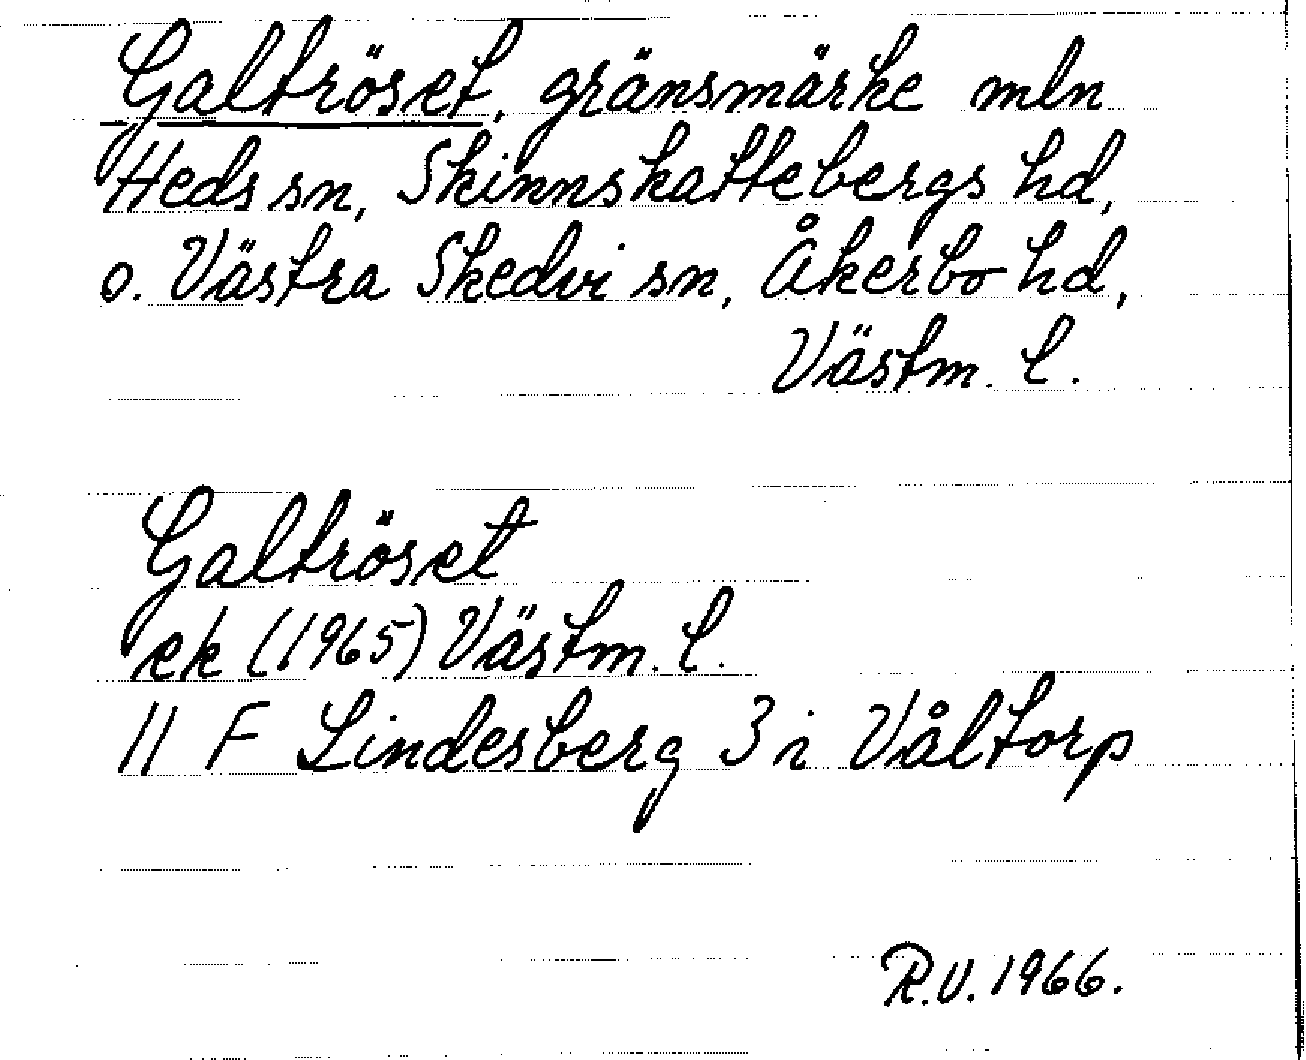 Galtröset, gränsmärke mln
Heds sn, Skinnskattebergs hd,
o. Västra Skedvi sn, Åkerbo hd,
Västm. l.
Galtröset
ek (1965) Västm. l.
11 F Lindesberg 3 i Våltorp
R.V. 1966.